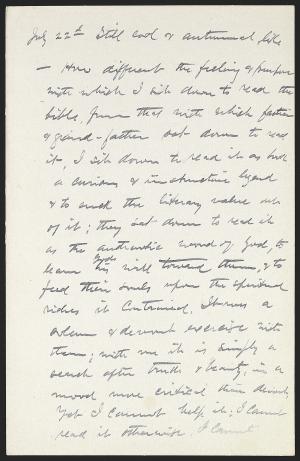 July 22d Still cool & autumnal like
— How different the feeling & purpose
with which I sit down to read the
bible, from that with which father
& grand-father sat down to read
it, I sit down to read it as but
a curious & instructive legend
& to suck the literary value out
of it; they sat down to read it
as the authentic word of God, to
learn God's his will toward them, & to
feed their souls upon the spiritual
riches it contained. It was a
solemn & devout exercise with
them; with me it is simply a
search after truth & beauty, in a
mood more critical than devout,
Yet I cannot help it; I cannot
read it otherwise. I cannot